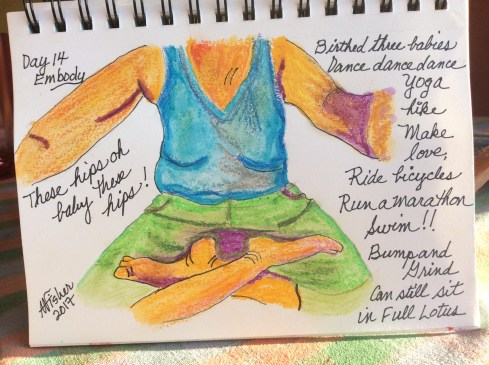 Day 14
Embody
These hips oh
baby these
hips!
AFisher
2017
Birthed three babies
Dance dance dance
Yoga
hike
Make
love,
Ride bicycles
Run a marathon
Swim!!
Bump and
Grind
Can still sit
in Full Lotus